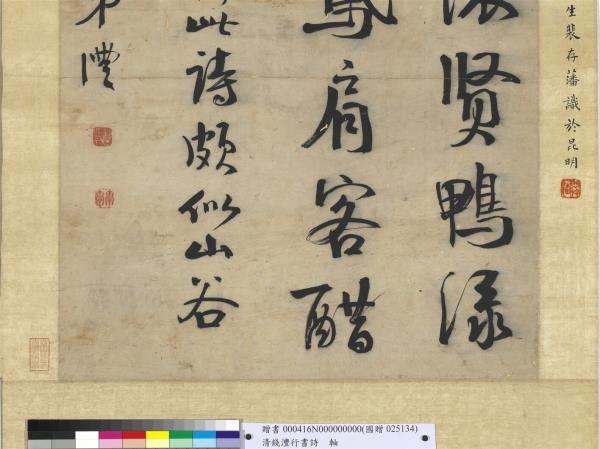 生裴存藩識於昆明
賢鴨淥
鳶肩客醋
此詩頗似山谷
弟灃
贈書 000416N000000000(國贈 025134)
清錢灃行書詩 軸